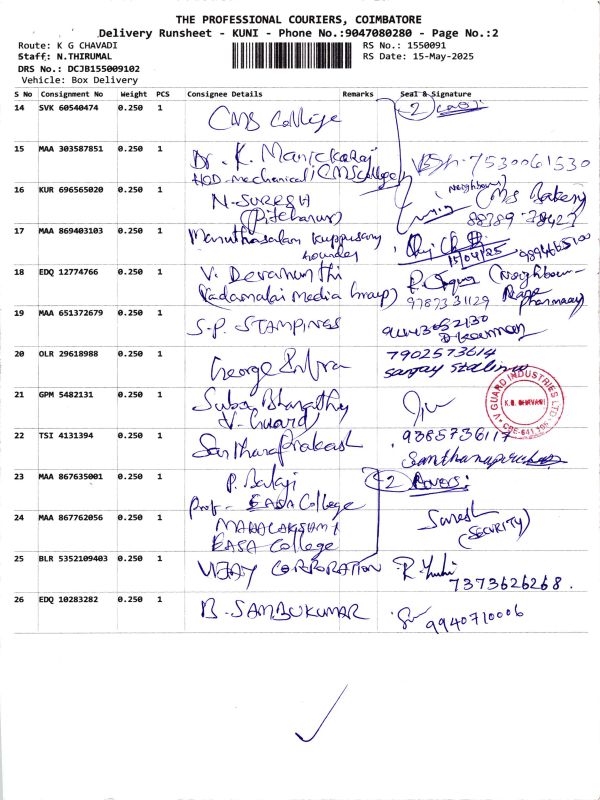 THE PROFESSIONAL COURIERS, COIMBATORE
Delivery Runsheet - KUNI - Phone No.:9047080280 - Page No.:2
Route: K G CHAVADI
RS No.: 1550091
Staff: N.THIRUMAL
RS Date: 15-May-2025
DRS No.: DCJB155009102
Vehicle: Box Delivery
S No Consignment No Weight PCS Consignee Details Remarks Seal & Signature
14 SVK 60540474 0.250 1 CMS College 2
15 MAA 303587851 0.250 1 Dr. K. Manickaraj 7530061530
HOD-mechanical CMS College
16 KUR 696565020 0.250 1 N-SURESH (Neighbour) CMS Bakery
(Pitchanur)
17 MAA 869403103 0.250 1 Maruthasalam Kuppusamy
Gounder
18 EDQ 12774766 0.250 1 V. Devanunthi (Neighbour-
Kadamalai media Group) 9787331129 pharmacy)
19 MAA 651372679 0.250 1 S.P. STAMPINGS
20 OLR 29618988 0.250 1 George Infra 7902573614
21 GPM 5482131 0.250 1 Suba Bharathy
V-Guard
V GUARD INDUSTRIES LTD.
22 TSI 4131394 0.250 1 Santhana Prakash 9385736117
Santhanaprakash
23 MAA 867635001 0.250 1 P. Balaji 2 Covers:
Prof- EASA College
24 MAA 867762056 0.250 1 MAHALAKSHMI Suresh
EASA College (SECURITY)
25 BLR 5352109403 0.250 1 VIJAY CORPORATION
7373626268.
26 EDQ 10283282 0.250 1 B. SAMBUKUMAR 9940710006